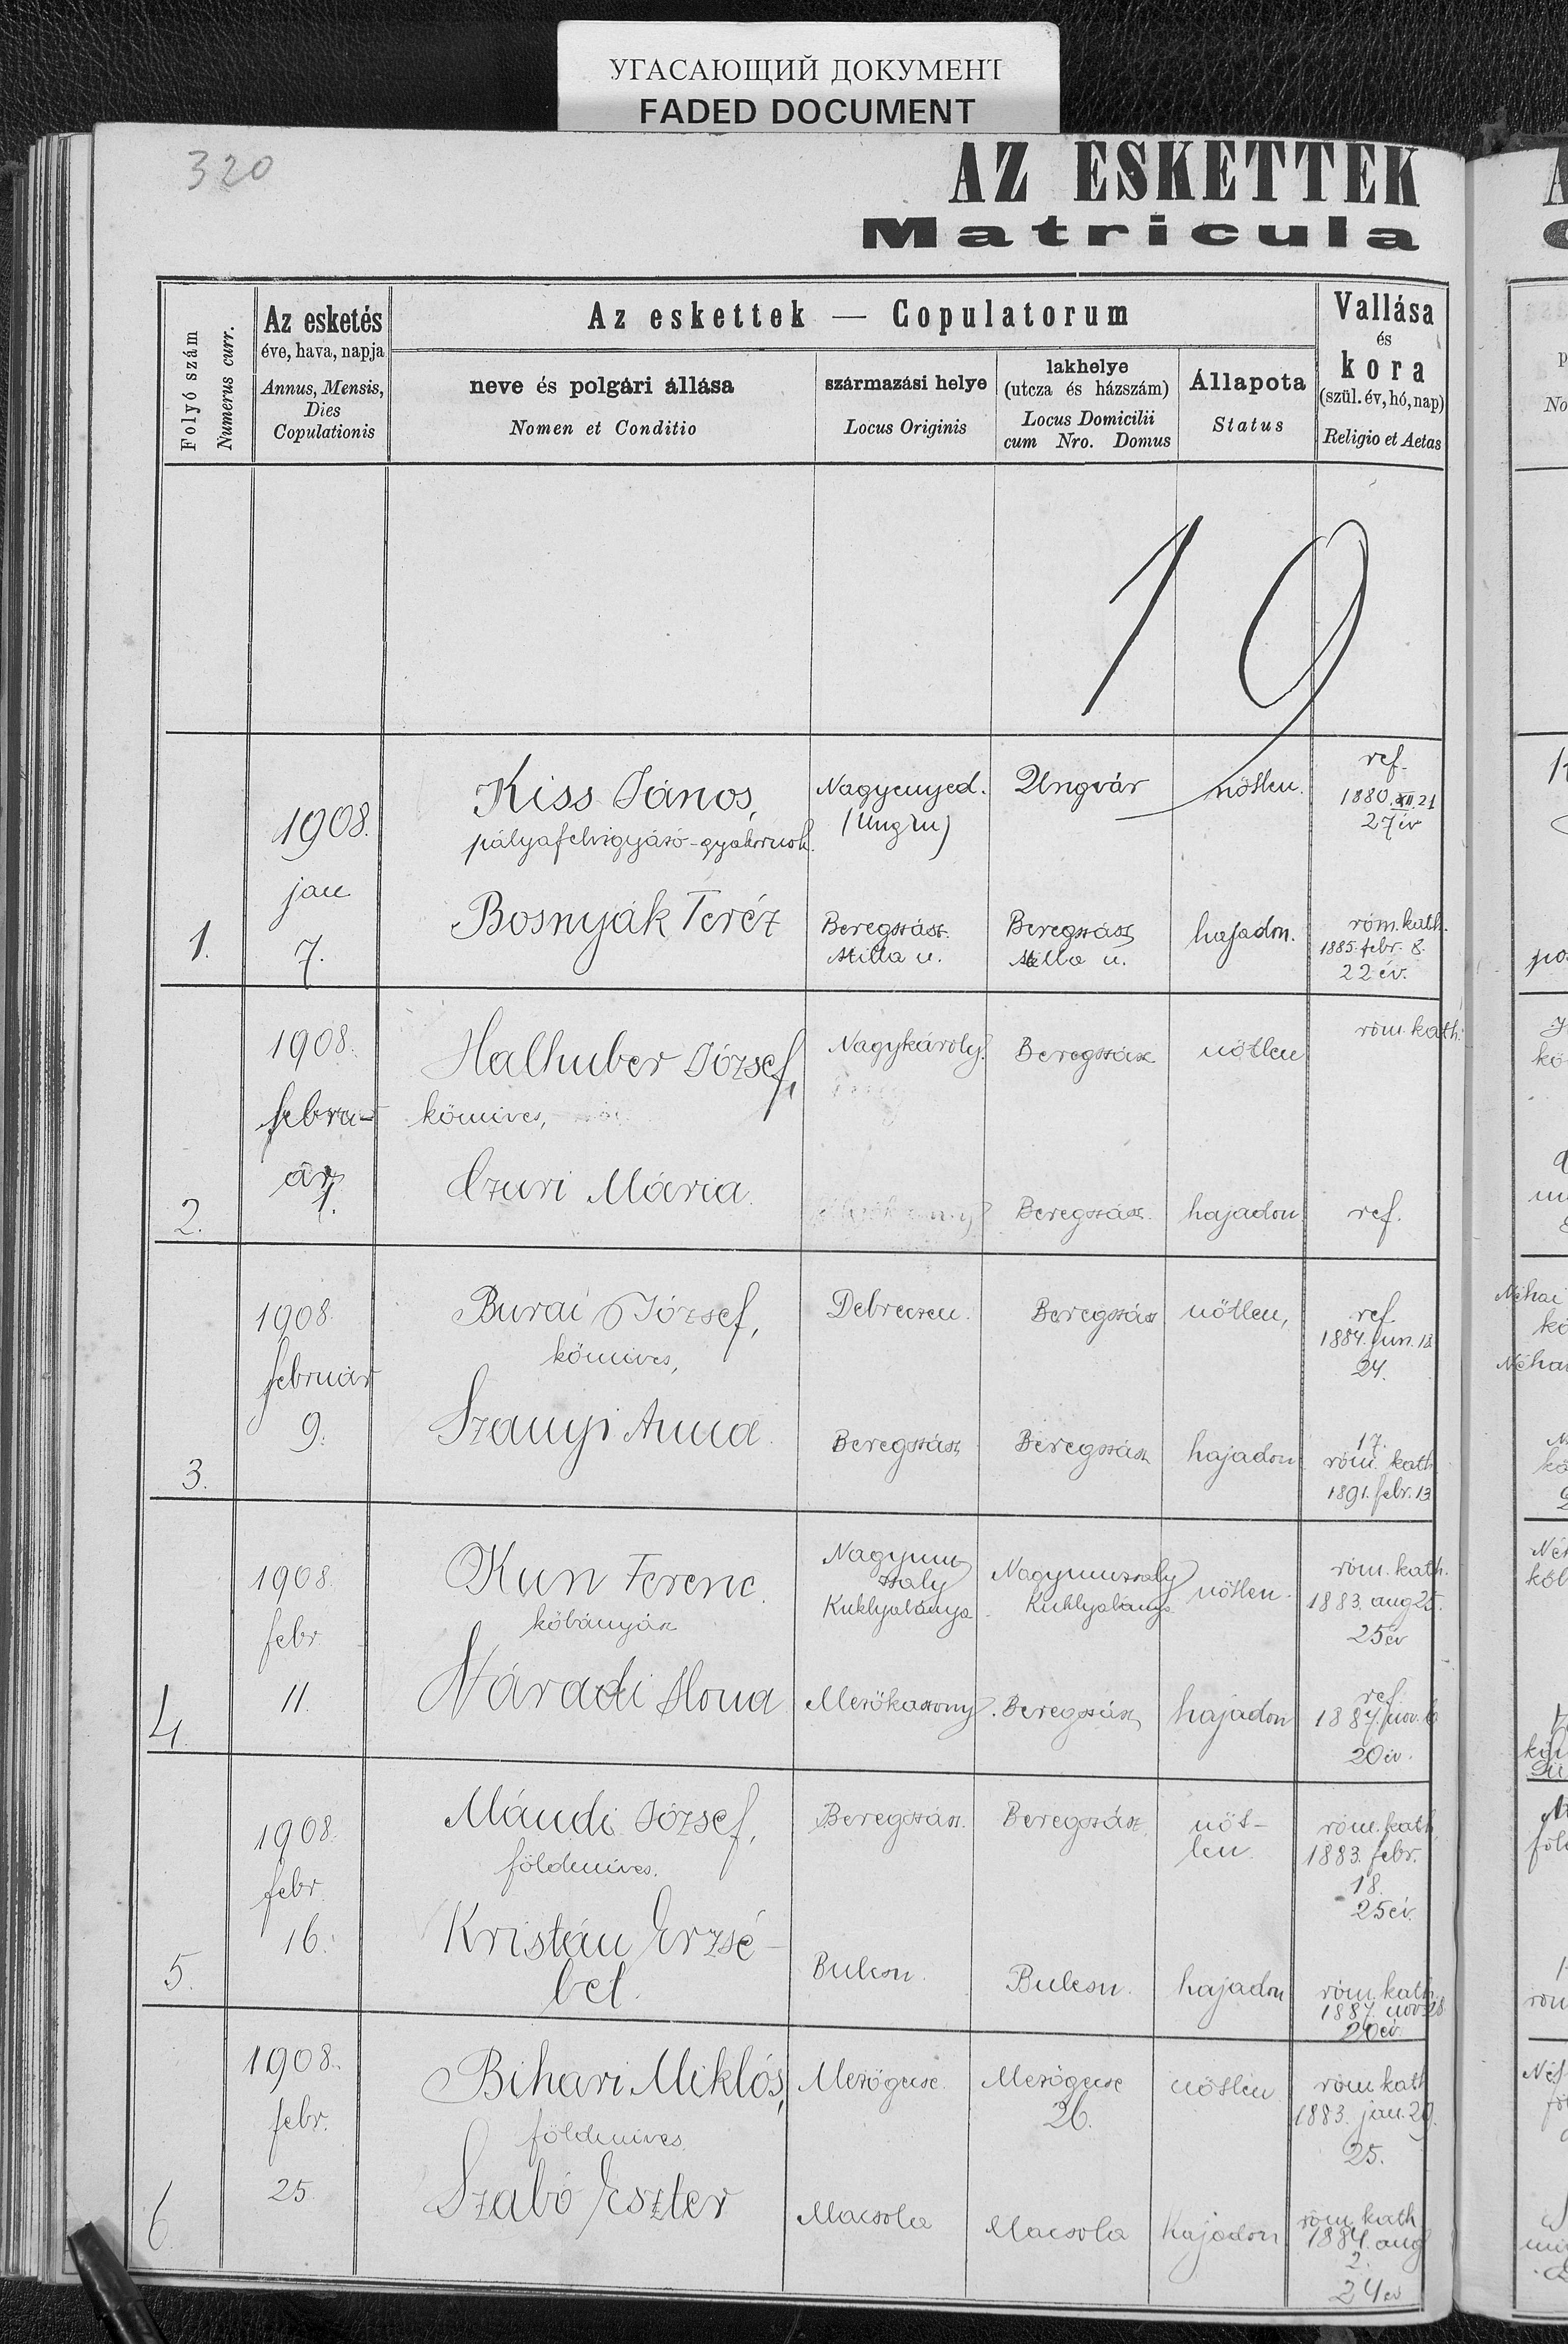 УГАСАЮЩИЙ ДОКУМЕНТ
FADED DOCUMENT
320
AZ ESKETTEK
Matricula
Folyó szám
Numerus curr.
Az esketés
éve, hava, napja
Annus, Mensis,
Dies
Copulationis
Az eskettek — Copulatorum
neve és polgári állása
Nomen et Conditio
származási helye
Locus Originis
lakhelye
(utcza és házszám)
Locus Domicilii
cum Nro. Domus
Állapota
Status
Vallása
és
kora
(szül. év, hó, nap)
Religio et Aetas
19
1.
1908.
jan
7.
Kiss János,
pályafelvigyázó-gyakornok.
Nagyenyed.
Ungvár
nőtlen.
ref.
1880. XII. 21
27 év
Bosnyák Teréz
Beregszász.
u.
Beregszász
u.
hajadon.
róm. kath.
1885. febr. 8.
22 év.
2.
1908.
febru-
ár
1.
Halhuber József,
kőmives,
Nagykároly.
Beregszász
nőtlen
róm. kath.
Czuri Mária.
Beregszász.
hajadon
ref.
3.
1908.
február
9.
Burai József,
kőmives,
Debreczen.
Beregszász
nőtlen,
ref.
1884. jun. 18
24.
Szanyi Anna.
Beregszász
Beregszász
hajadon
17.
róm. kath
1891. febr. 13
4.
1908.
febr.
11.
Kun Ferenc.
kőbányász
Nagymu
zsaly
Kuklyabánya
Nagymuzsaly
Kuklyabánya
nőtlen.
róm. kath.
1883. aug 25.
25 év
Váradi Ilona
Mezőkaszony.
Beregszász
hajadon
ref.
1887. nov. 6
20 év.
5.
1908.
febr.
16.
Mándi József,
földmives.
Beregszász.
Beregszász.
nőt-
len.
róm. kath.
1883. febr.
18.
25 év.
Kristán Erzsé-
bet.
Bulcsu.
Bulcsu.
hajadon
róm. kath.
1887. nov. 28
20 év.
6.
1908.
febr.
25.
Bihari Miklós,
földmives.
Mezőgecse.
Mezőgecse
26.
nőtlen
róm. kath
1883. jan. 29.
25.
Szabó Eszter
Macsola
Macsola
hajadon
róm. kath
1884. aug
2.
24 év